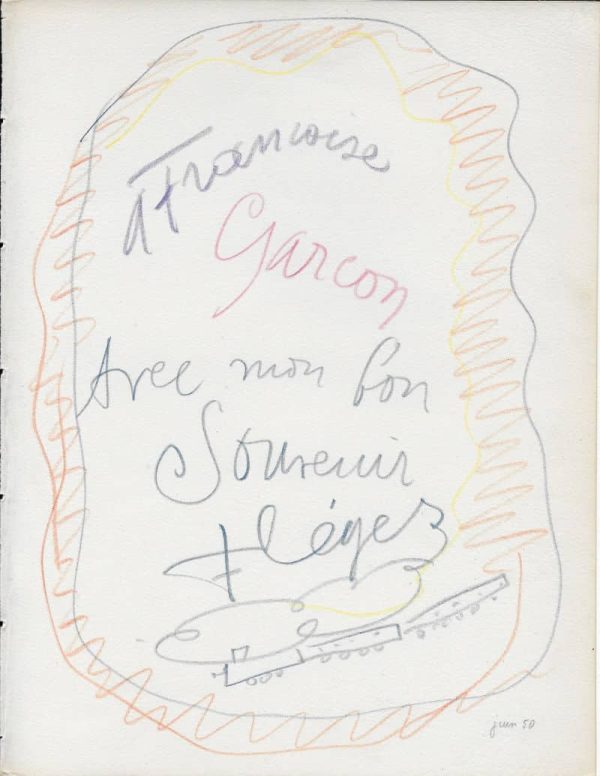 A Françoise
Garcon
Avec mon bon
Souvenir
F Léger
juin 50